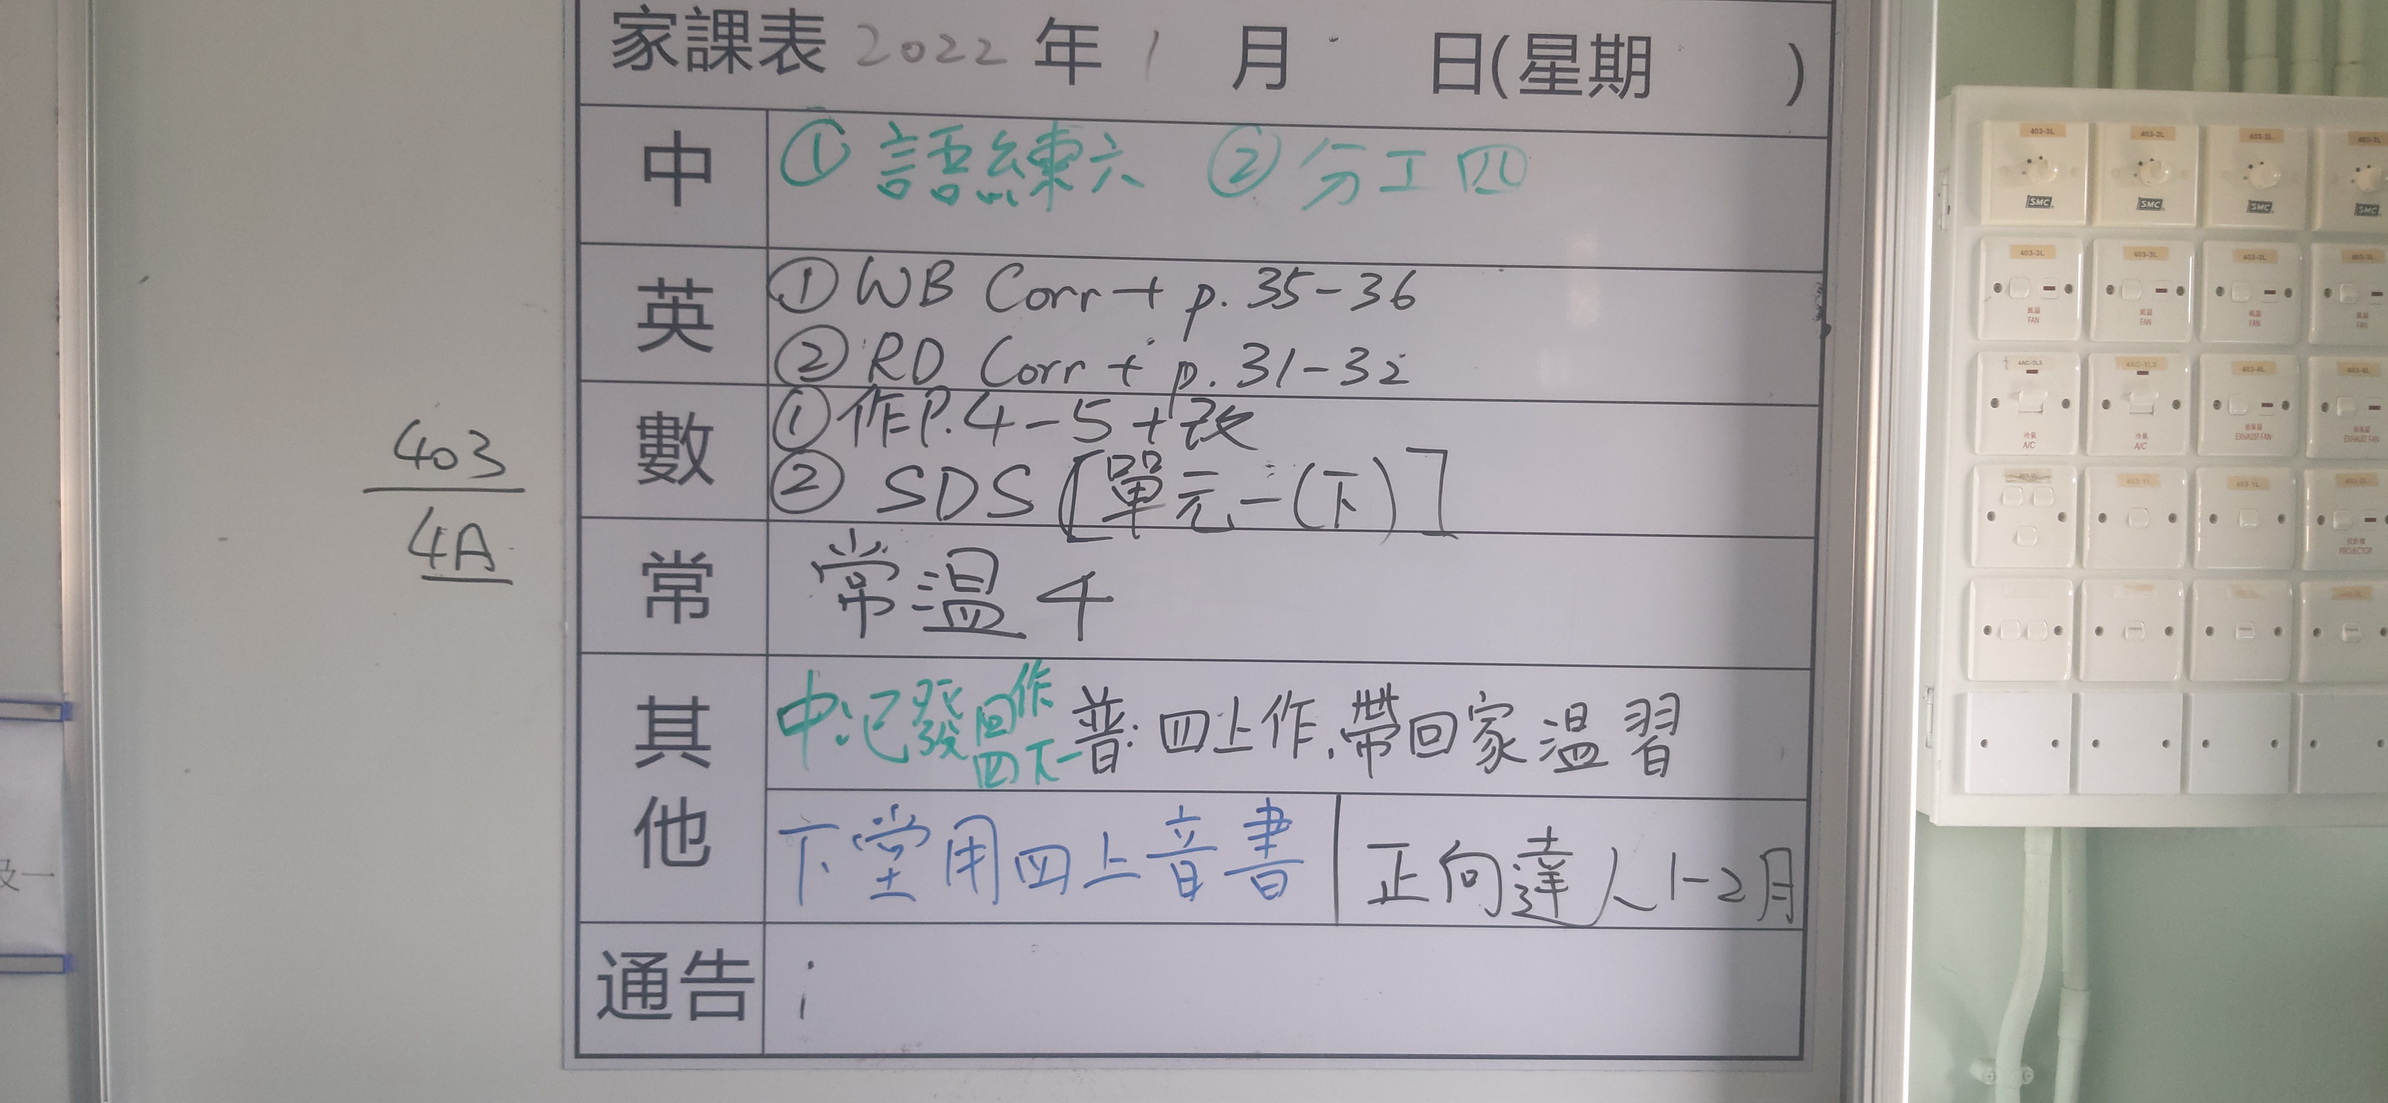 家課表 2022 年 1 月 日(星期 )
中 ① 語練六 ② 分工四
英 ① WB Corr + p. 35-36
② RD Corr + p. 31-32
數 ① 作P. 4-5 + 改
② SDS [單元一(下)]
常 常溫 4
其他 發回作 四下一 普: 四上作, 帶回家溫習
下堂用四上音書 | 正向達人 1-2月
通告 :
403
4A
及一
403-3L 403-3L 403-3L 403-3L
SMC SMC SMC SMC
403-3L 403-3L 403-3L
風扇 FAN 風扇 FAN 風扇 FAN FAN
冷氣 A/C 冷氣 A/C 抽氣扇 EXHAUST FAN 抽氣扇 EXHAUST FAN
投影機 PROJECTOR